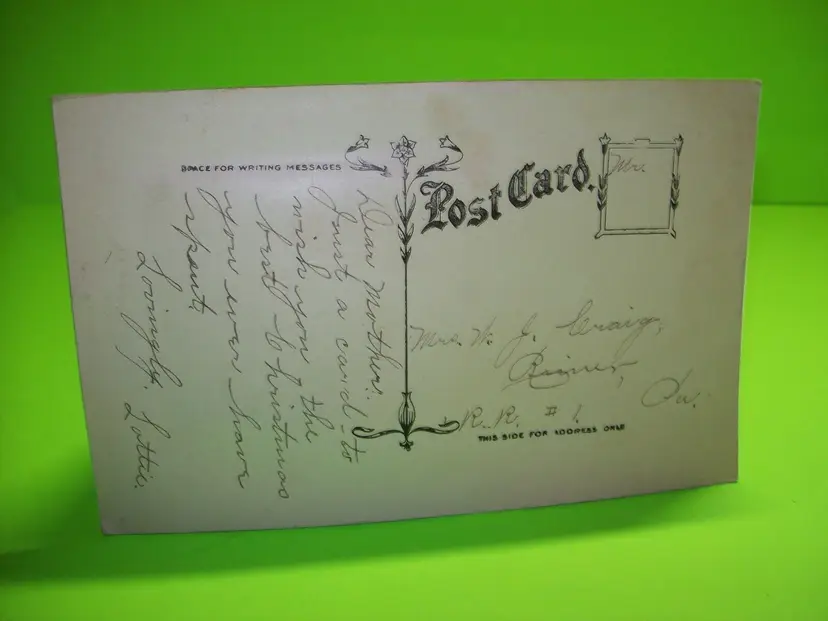 SPACE FOR WRITING MESSAGES
Post Card.
Mrs
Dear Mother:
Just a card to
wish you the
best Christmas
you ever have
spent.
Lovingly, Lottie.
Mrs. W. J. Craig,
Rimer,
Pa.
R. R. #1.
THIS SIDE FOR ADDRESS ONLY